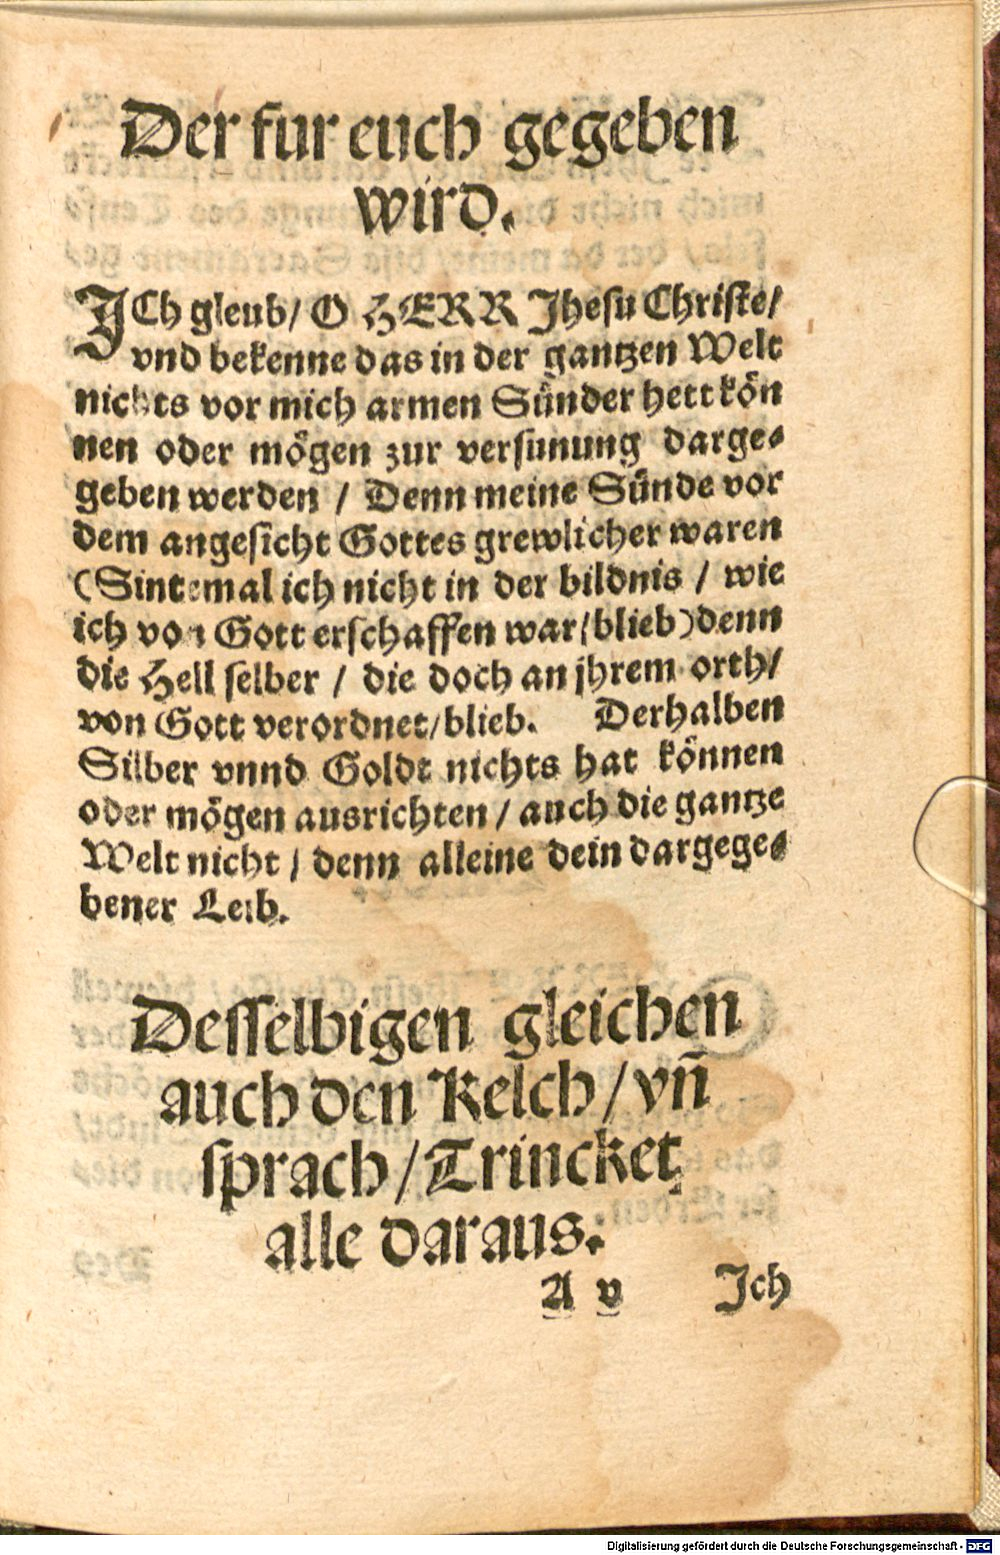 Der fur euch gegeben
wird.
JCh gleub/ O HERR Jhesu Christe/
vnd bekenne das in der gantzen Welt
nichts vor mich armen Sünder hett kön
nen oder mögen zur versunung darge-
geben werden / Denn meine Sünde vor
dem angesicht Gottes grewlicher waren
(Sintemal ich nicht in der bildnis / wie
ich von Gott erschaffen war/blieb) denn
die Hell selber / die doch an jhrem orth/
von Gott verordnet/blieb. Derhalben
Silber vnnd Goldt nichts hat können
oder mögen ausrichten / auch die gantze
Welt nicht / denn alleine dein dargege-
bener Leib.
Desselbigen gleichen
auch den Kelch / vñ
sprach / Trincket
alle daraus.
A v Jch
Digitalisierung gefördert durch die Deutsche Forschungsgemeinschaft - DFG